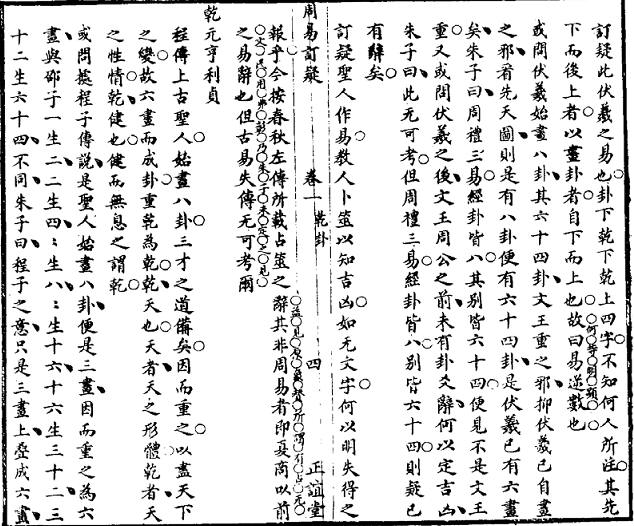 訂疑此伏羲之易也卦下乾下乾上四字不知何人所注其先
下而後上者以畫卦者自下而上也故曰易逆數也
或問伏羲始畫八卦其六十四卦文王重之邪抑伏羲已自畫
之邪看先天圖則是有八卦便有六十四卦是伏羲已有六畫
矣朱子曰周禮三易經卦皆八其别皆六十四便見不是文王
重又或問伏羲之後文王周公之前未有卦爻辭何以定吉凶
朱子曰此无可考但周禮三易經卦皆八别皆六十四則疑已
有辭矣
訂疑聖人作易教人卜筮以知吉凶如无文字何以明失得之
周易訂疑 卷一 乾卦 四 正誼堂
報乎今按春秋左傳所載占筮之辭其非周易者即夏商以前
之易辭也但古易失傳无可考爾
乾元亨利貞
程傳上古聖人始畫八卦三才之道備矣因而重之以盡天下
之變故六畫而成卦重乾為乾乾天也天者天之形體乾者天
之性情乾健也健而無息之謂乾
或問據程子傳說是聖人始畫八卦便是三畫因而重之為六
畫與邵子一生二二生四四生八八生十六十六生三十二三
十二生六十四不同朱子曰程子之意只是三畫上疊成六畫